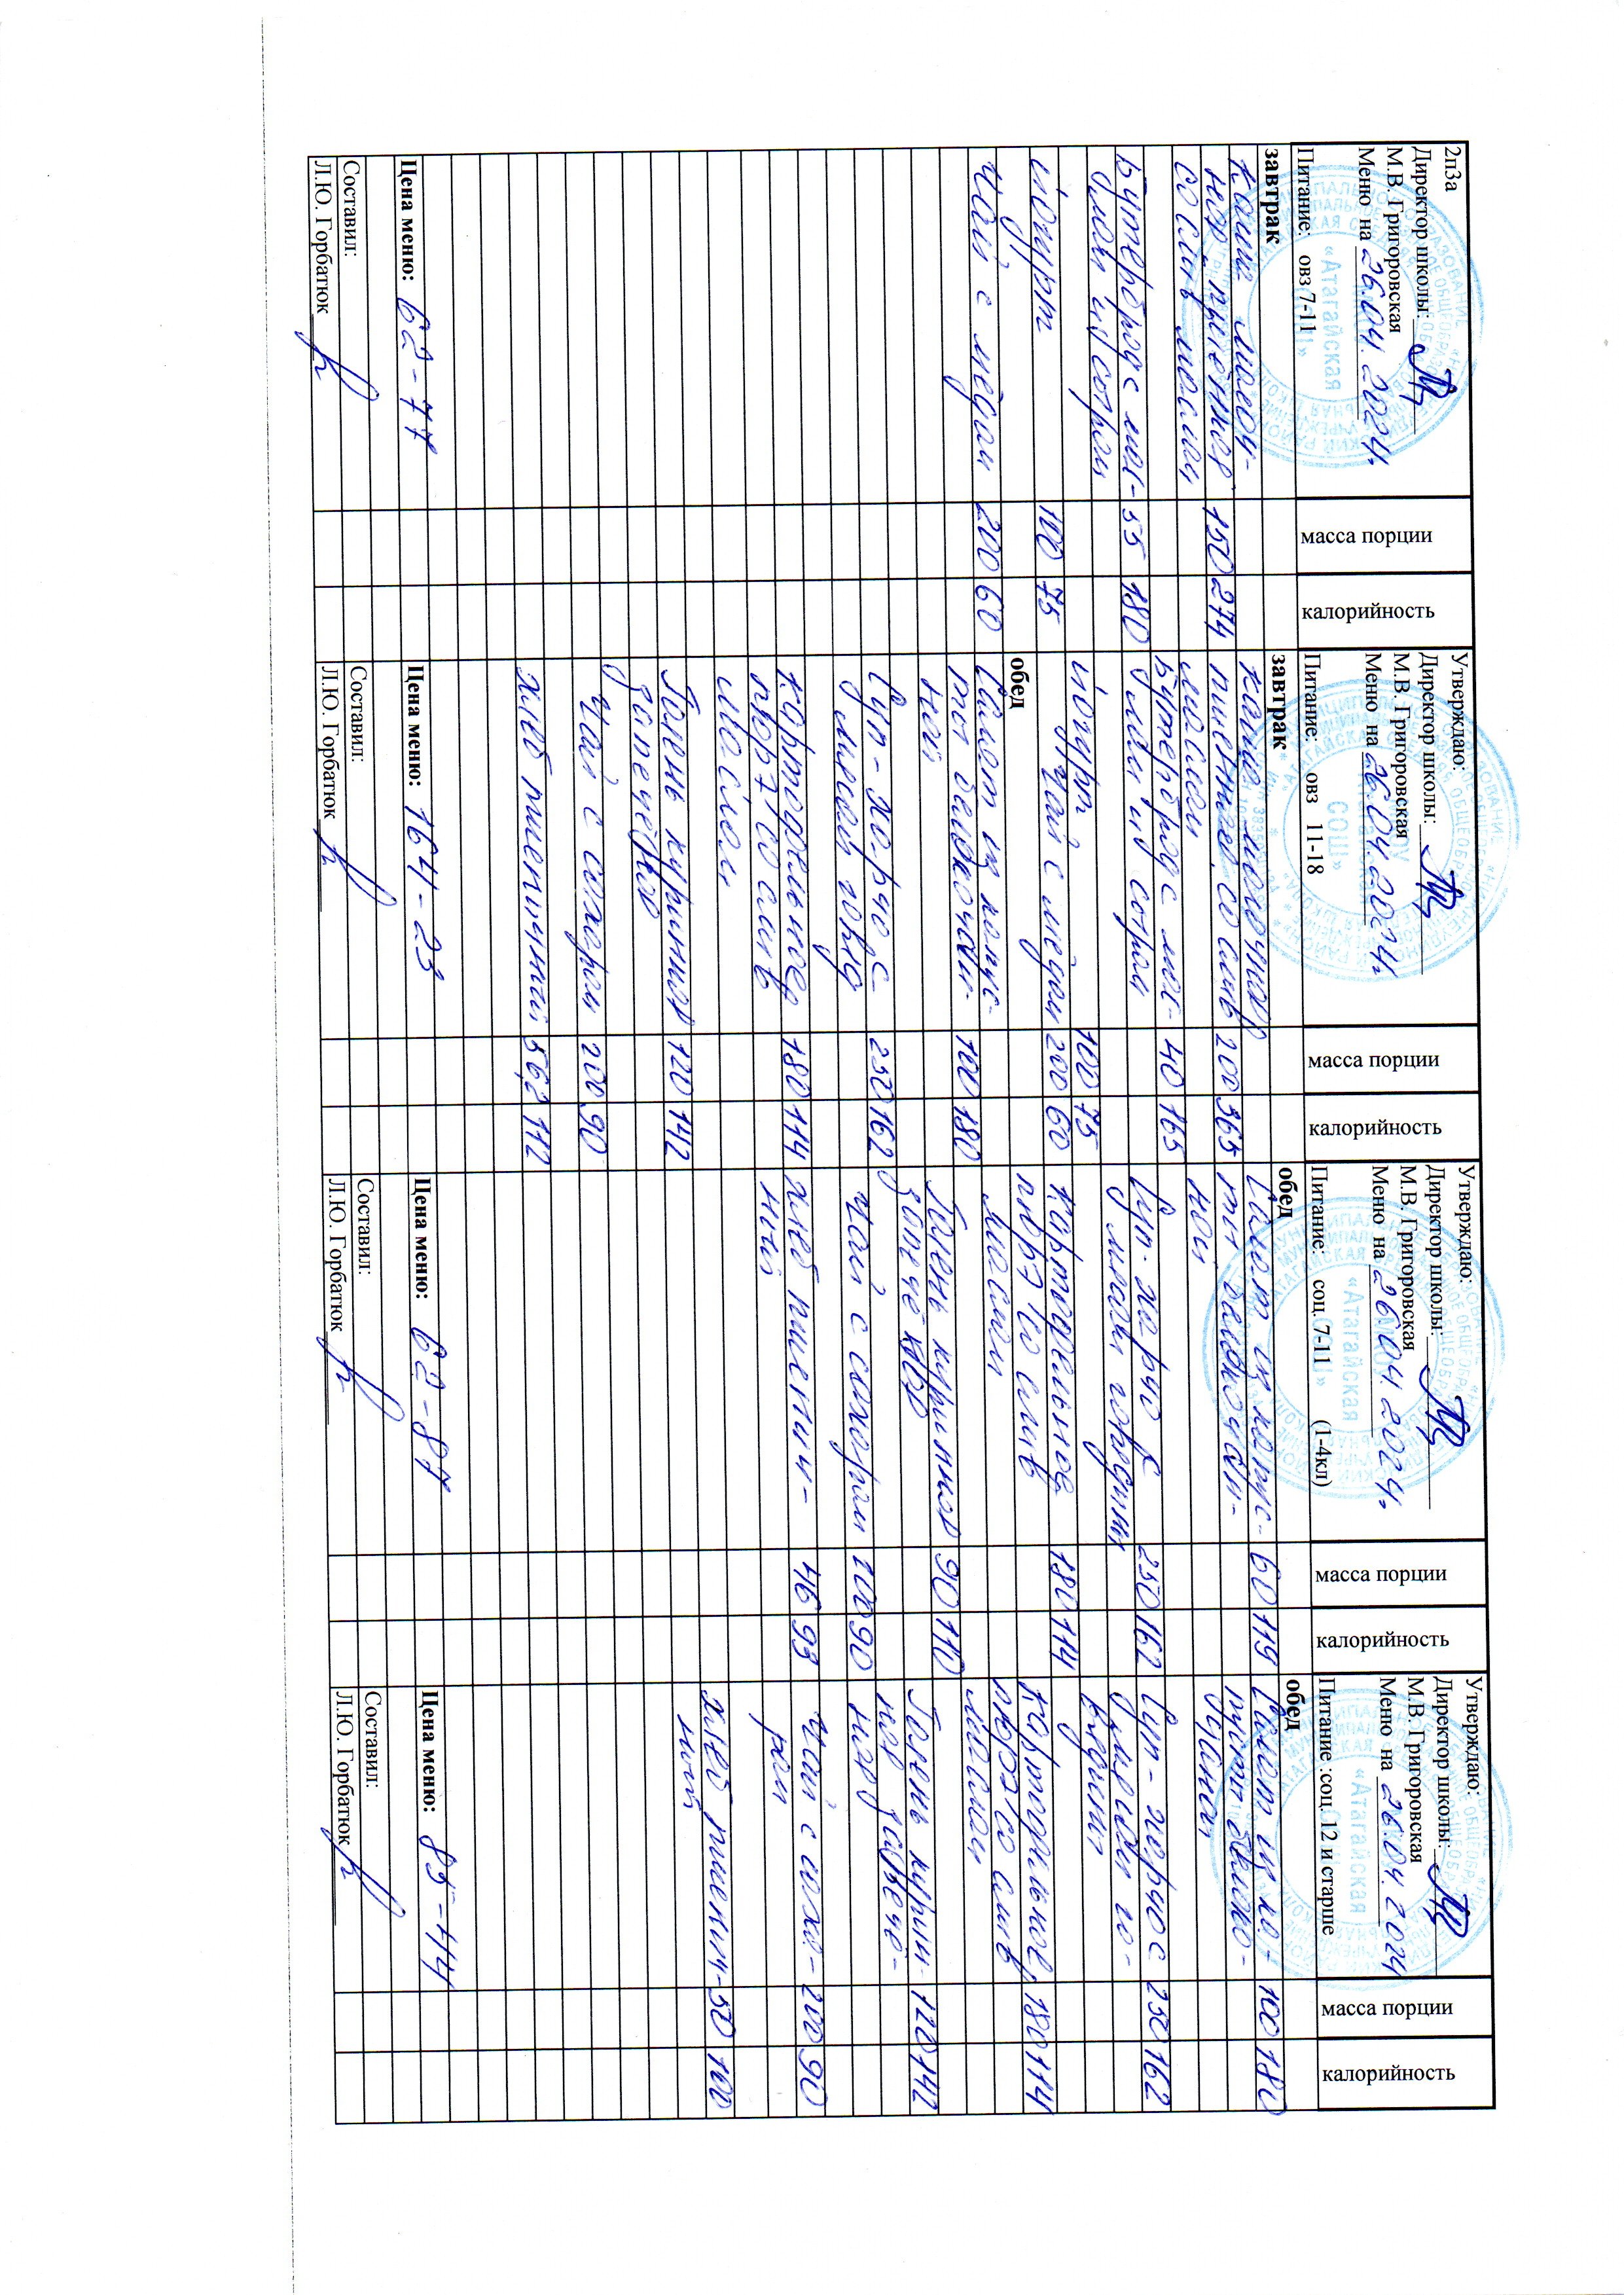 2п3а
Директор школы:
М.В. Григоровская
Меню на 26.04.2024.
Питание: овз 7-11
масса порции
калорийность
завтрак
Каша молоч-
ная пшенная 150 274
со слив маслом
Бутерброд с мас- 55 180
лом и сыром
йогурт 100 75
Чай с мёдом 200 60
Цена меню: 62-77
Составил:
Л.Ю. Горбатюк
Утверждаю:
Директор школы:
М.В. Григоровская
Меню на 26.04.2024
Питание: овз 11-18
масса порции
калорийность
завтрак
каша молочная
пшенная со слив 200 365
маслом
Бутерброд с мас- 40 165
лом и сыром
йогурт 100 75
Чай с мёдом 200 60
обед
Салат из капус- 100 180
ты белокочан-
ной
Суп-харчо с 250 162
мясом говяд
Картофельное 180 114
пюре со слив
маслом
Голень куриная 120 142
запечённая
Чай с сахаром 200 90
хлеб пшеничный 56,2 112
Цена меню: 164-23
Составил:
Л.Ю. Горбатюк
Утверждаю:
Директор школы:
М.В. Григоровская
Меню на 26.04.2024.
Питание: соц. 7-11 (1-4кл)
масса порции
калорийность
обед
Салат из капус- 60 119
ты белокочан-
ной
Суп-харчо с 250 162
мясом говядины
Картофельное 180 114
пюре со слив
маслом
Голень куриная 90 110
запечённая
Чай с сахаром 200 90
хлеб пшенич- 46 93
ный
Цена меню: 62-87
Составил:
Л.Ю. Горбатюк
Утверждаю:
Директор школы:
М.В. Григоровская
Меню на 26.04.2024
Питание :соц.12 и старше
масса порции
калорийность
обед
Салат из ка- 100 180
пусты белоко-
чанной
Суп-харчо с 250 162
мясом го-
вядины
Картофельное 180 114
пюре со слив
маслом
Голень кури- 120 142
ная запечён-
ная
Чай с саха- 200 90
ром
хлеб пшенич- 50 100
ный
Цена меню: 85-44
Составил:
Л.Ю. Горбатюк